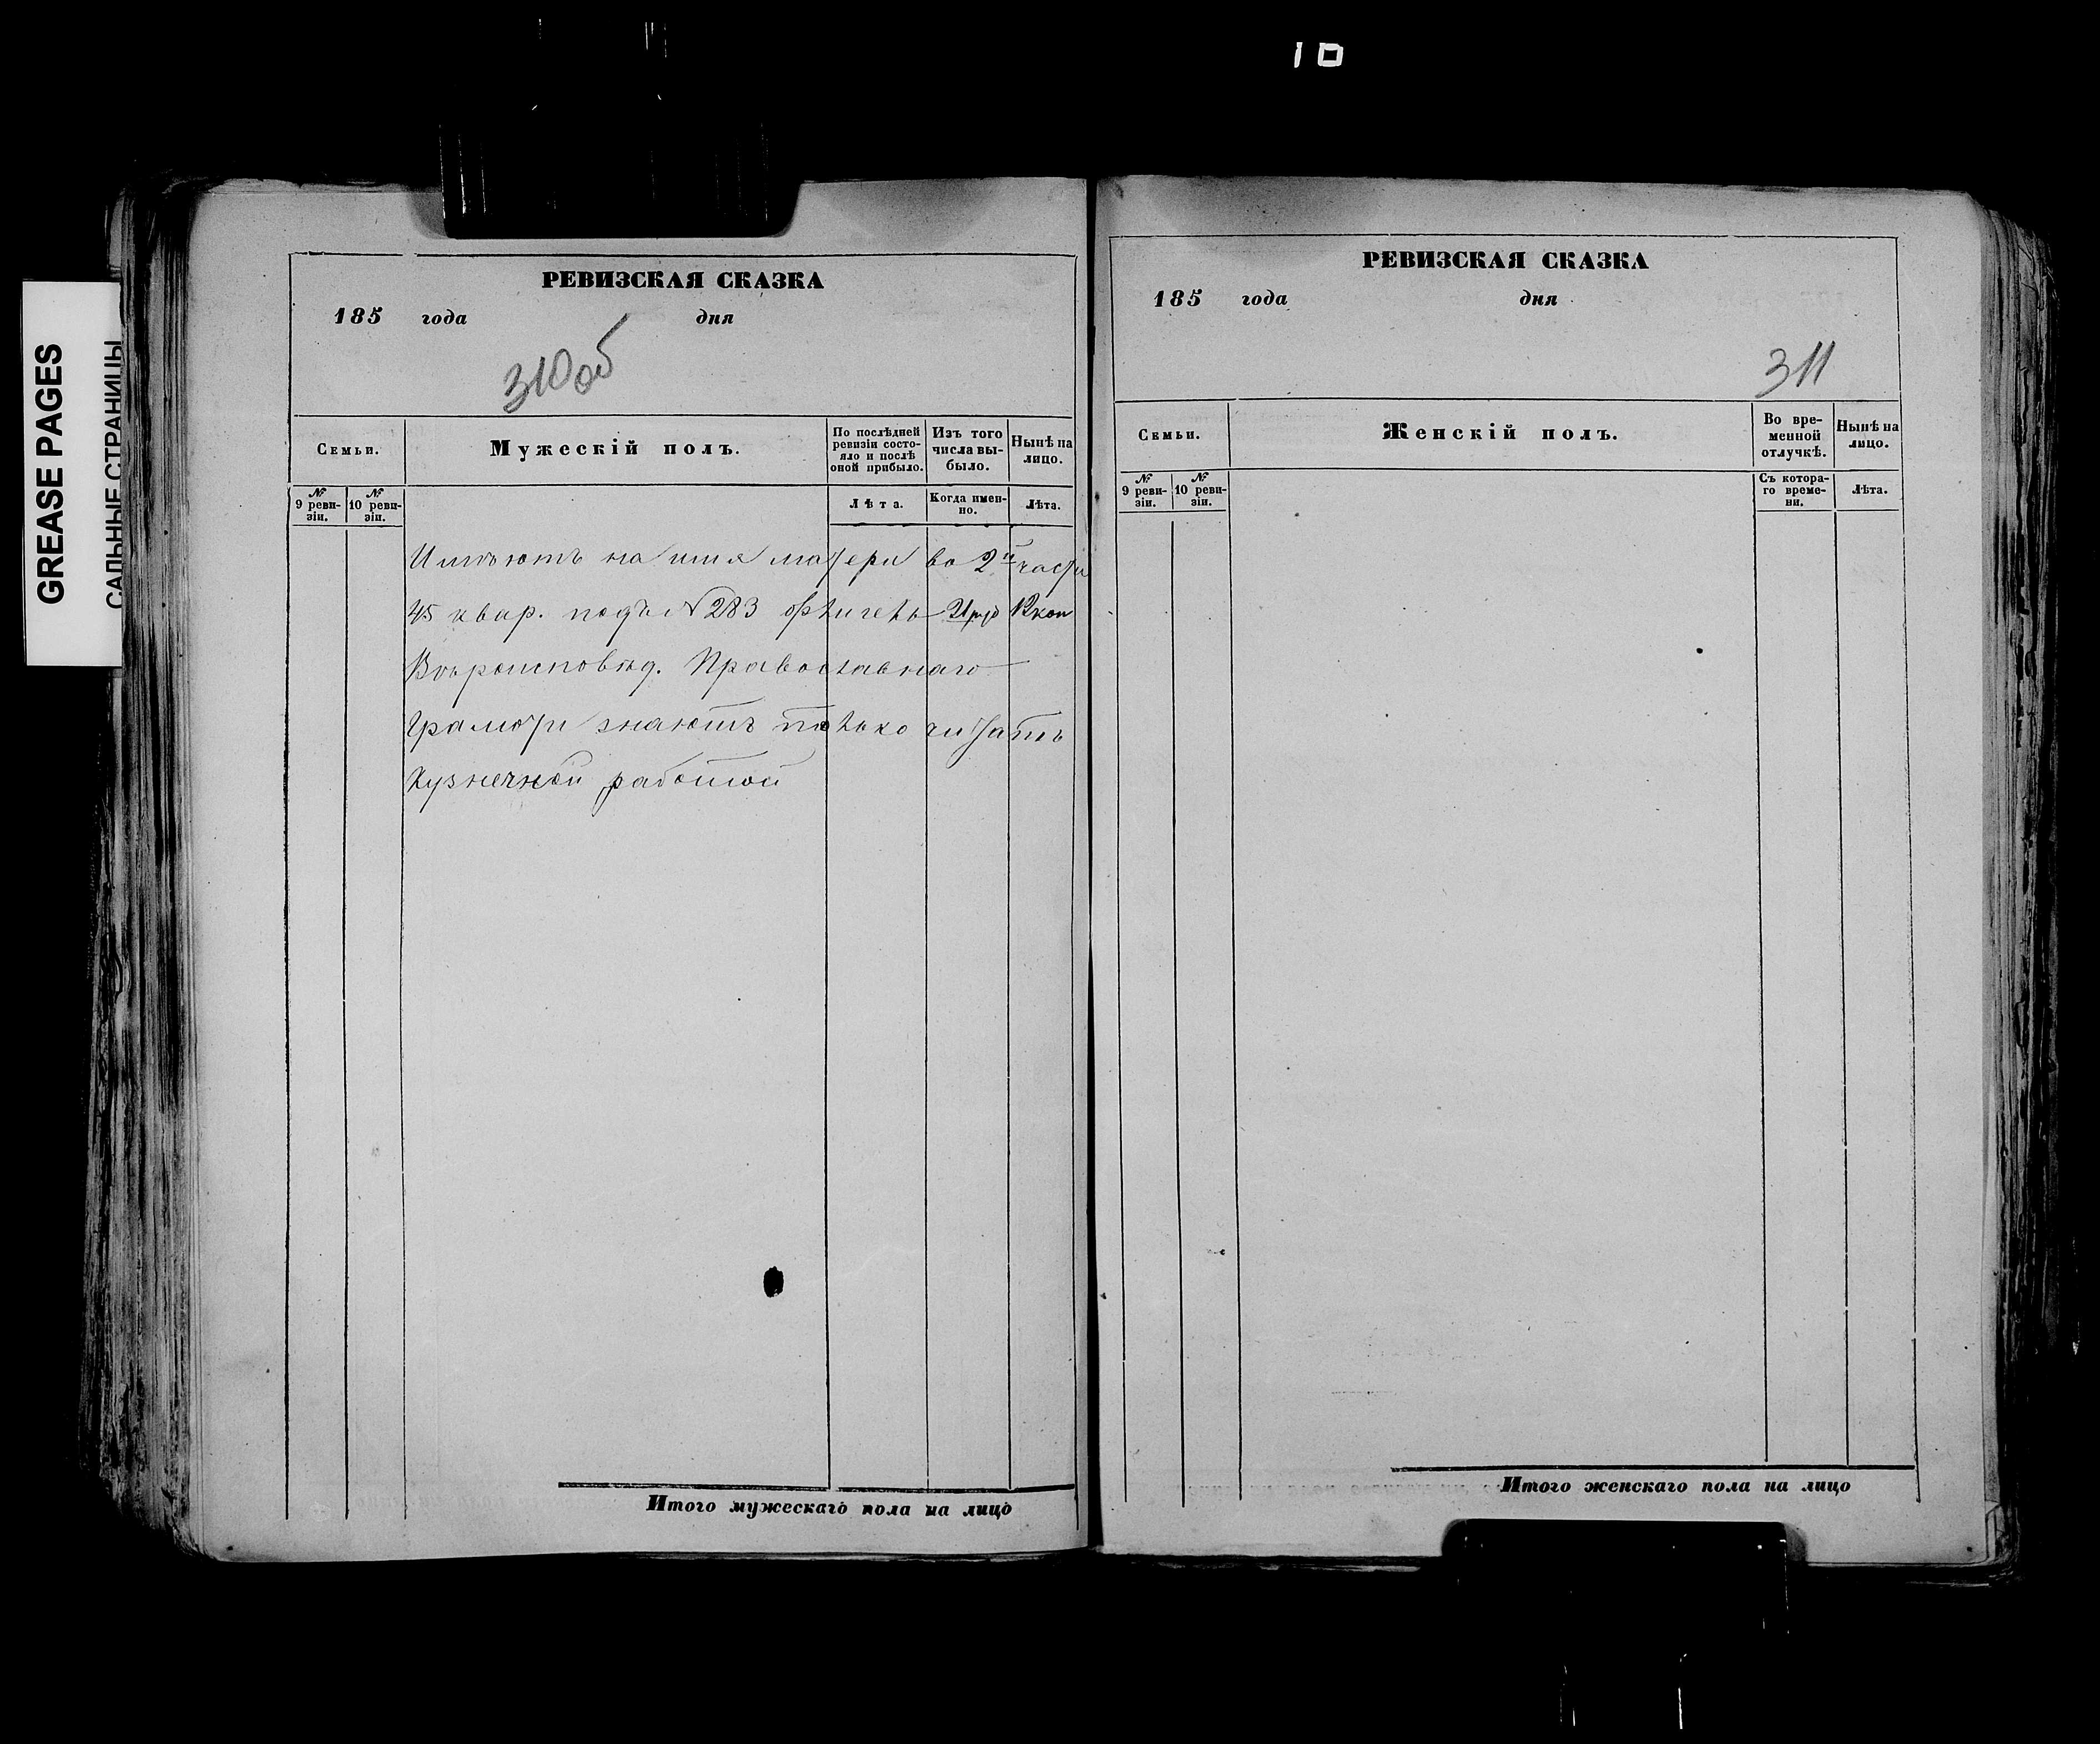 10
GREASE PAGES
САЛЬНЫЕ СТРАНИЦЫ
РЕВИЗСКАЯ СКАЗКА
185 года дня
310 об
Семьи.
Мужескій полъ.
По послѣдней ревизіи состояло и послѣ оной прибыло.
Изъ того числа выбыло.
Нынѣ на лицо.
№ 9 ревизіи.
№ 10 ревизіи.
Лѣта.
Когда именно.
Лѣта.
Имѣютъ на имя матери во 2й части
45 квар. подъ № 283 21 ру 12 коп
Вѣроисповѣд. Православнаго
Грамоти знаютъ только читать
Кузнечной работой
Итого мужескаго пола на лицо
РЕВИЗСКАЯ СКАЗКА
185 года дня
311
Семьи.
Женскій полъ.
Во временной отлучкѣ.
Нынѣ на лицо.
№ 9 ревизіи.
№ 10 ревизіи.
Съ котораго времени.
Лѣта.
Итого женскаго пола на лицо